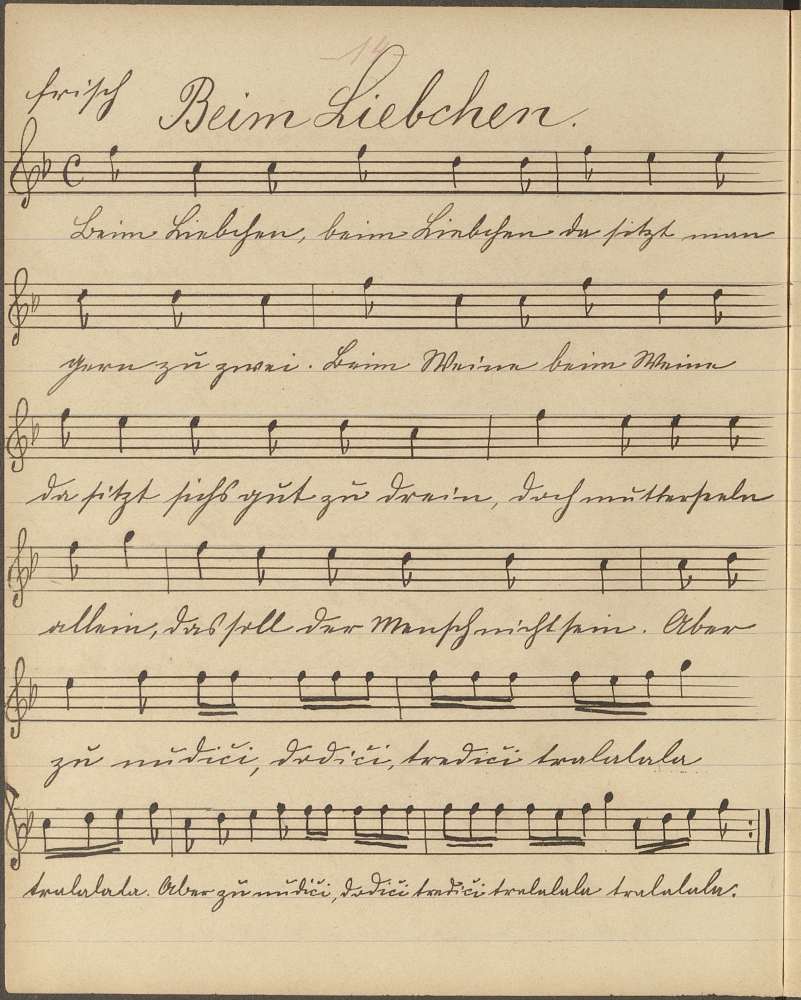 14
frisch Beim Liebchen.
Beim Liebchen, beim Liebchen da sitzt man
gern zu zwei. Beim Weine beim Weine
da sitzt sichs gut zu drein, doch mutterseeln
allein, das soll der Mensch nicht sein. Aber
zu nudici, dodici, tredici tralalala
tralalala. Aber zu nudici, dodici tredici tralalala tralalala.